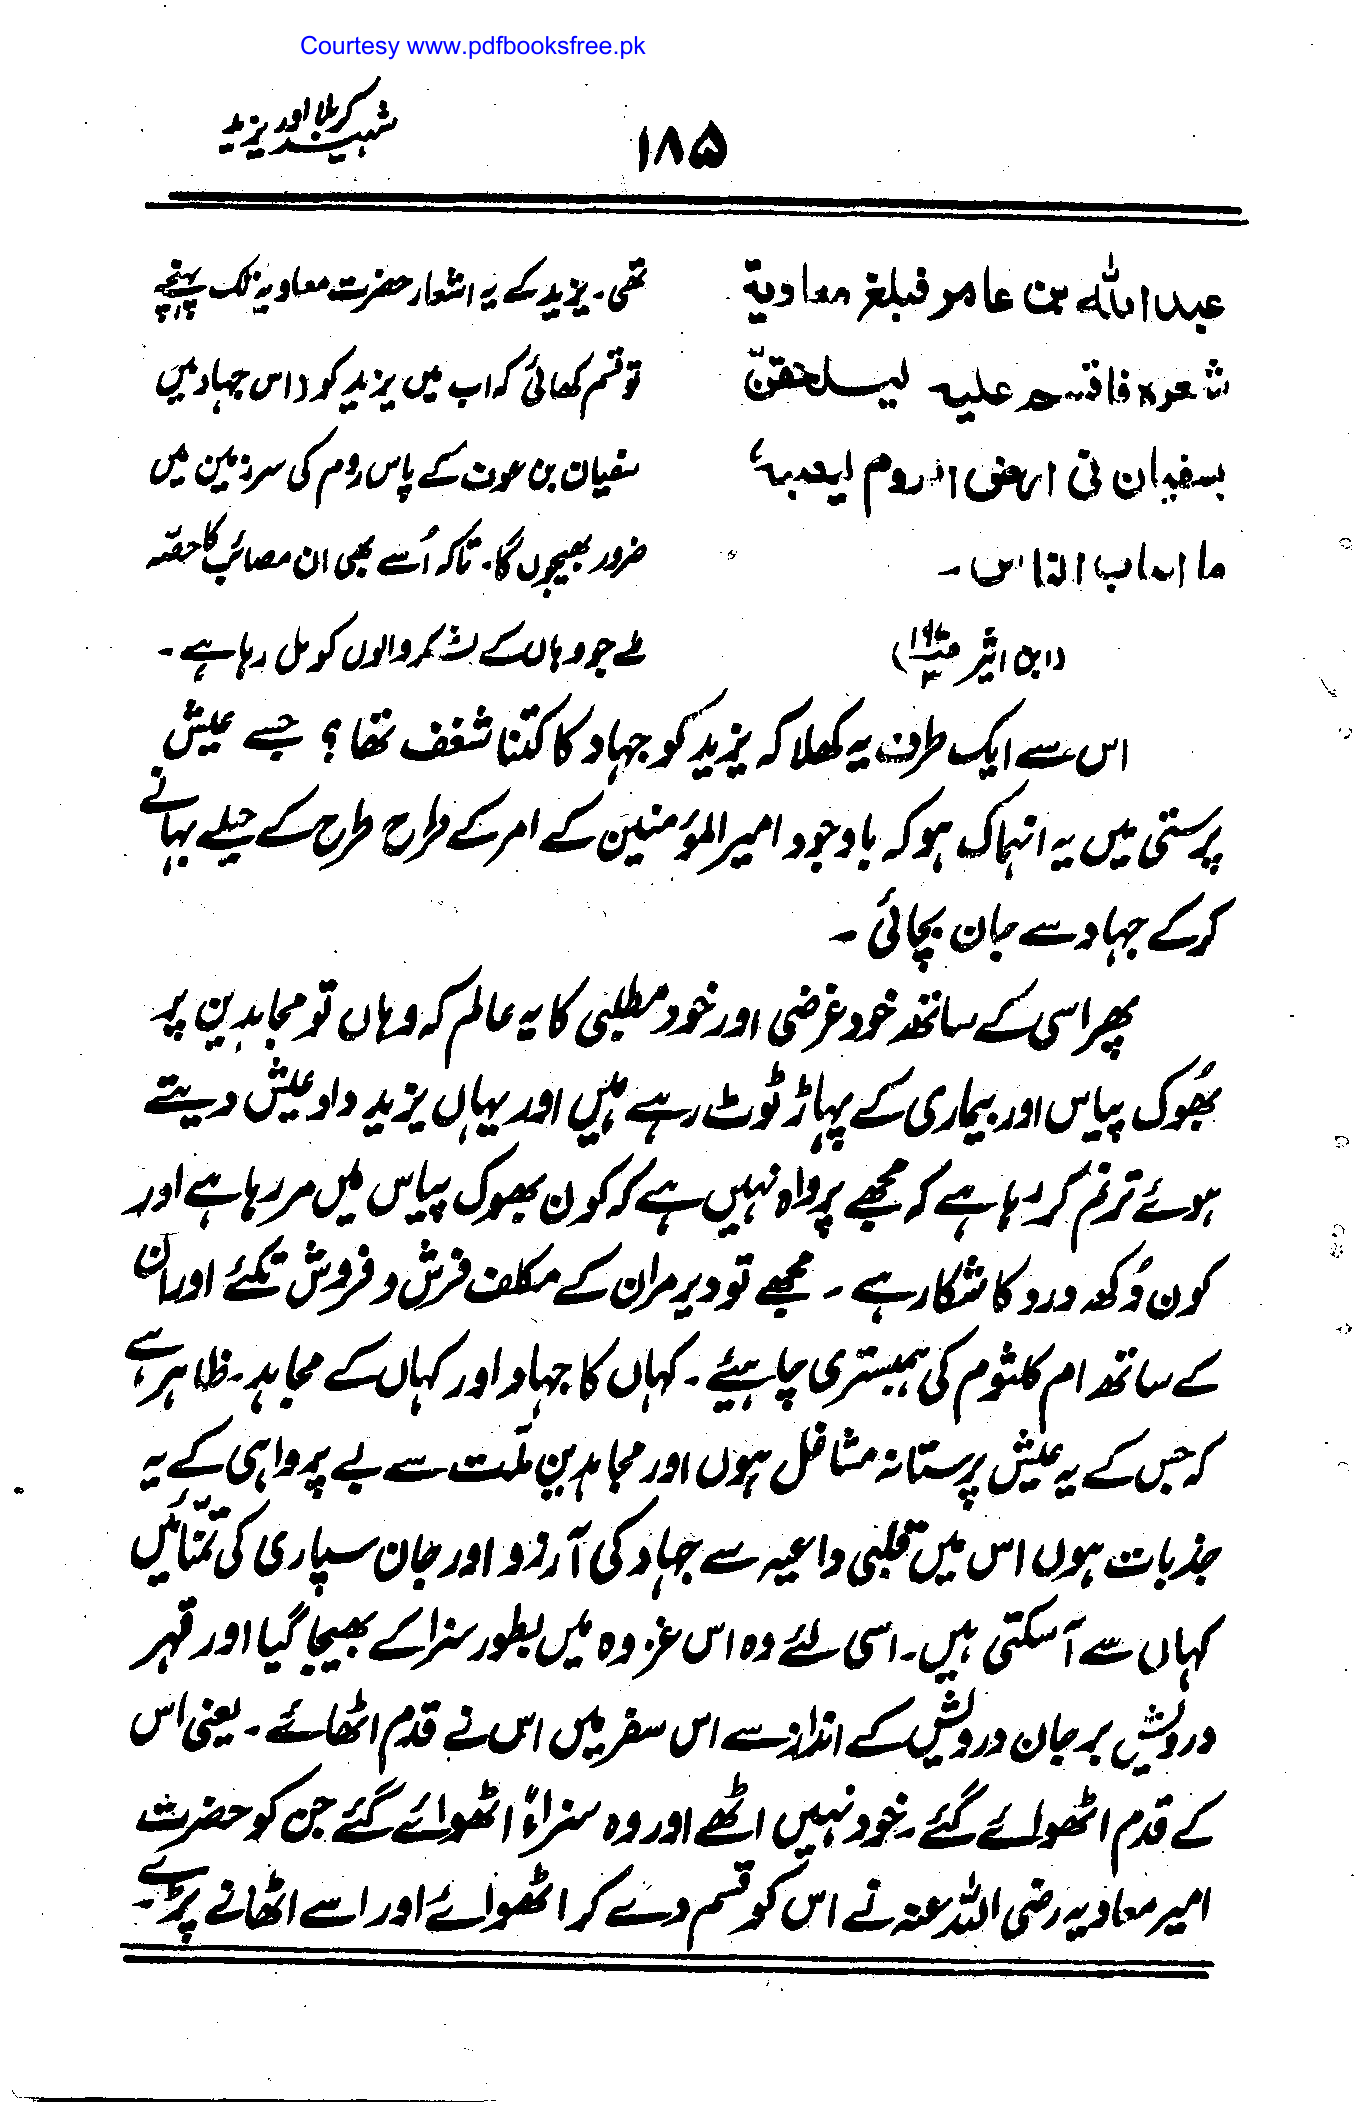 Courtesy www.pdfbooksfree.pk
شہید کربلا اور یزید
۱۸۵
عبد اللہ بن عامر فبلغ معاویة
شعره فاقسم علیہ لیسلحقنّ
بسفیان فی ارض الروم لیصیبہٗ
ما اصاب الناس ۔
(ابن اثیر ص۱۹۷ ۳)
تھی ۔ یزید کے یہ اشعار حضرت معاویہ تک پہنچے
تو قسم کھائی کہ اب میں یزید کو (اس جہاد میں
سفیان بن عوف کے پاس روم کی سرزمین میں
ضرور بھیجوں گا ۔ تاکہ اُسے بھی ان مصائب کا حصّہ
ملے جو وہاں کے لشکر والوں کو مل رہا ہے ۔
اس سے ایک طرف یہ کھلا کہ یزید کو جہاد کا کتنا شغف تھا ؟ جسے عیش
پرستی میں یہ انہماک ہو کہ باوجود امیر المؤمنین کے امر کے طرح طرح کے حیلے بہانے
کر کے جہاد سے جان بچائی ۔
پھر اسی کے ساتھ خود غرضی اور خود مطلبی کا یہ عالم کہ وہاں تو مجاہدین پر
بھُوک پیاس اور بیماری کے پہاڑ ٹوٹ رہے ہیں اور یہاں یزید داد عیش دیتے
ہوئے ترنم کر رہا ہے کہ مجھے پرواہ نہیں ہے کہ کون بھوک پیاس میں مر رہا ہے اور
کون دُکھ درد کا شکار ہے ۔ مجھے تو دیر مران کے مکلف فرش و فروش تکئے اور ان
کے ساتھ ام کلثوم کی ہمبستری چاہیئے ۔ کہاں کا جہاد اور کہاں کے مجاہد ۔ ظاہر ہے
کہ جس کے یہ عیش پرستانہ مشاغل ہوں اور مجاہدین ملّت سے بے پرواہی کے یہ
جذبات ہوں اس میں قلبی داعیہ سے جہاد کی آرزو اور جان سپاری کی تمنّائیں
کہاں سے آ سکتی ہیں ۔ اسی لئے وہ اس غزوہ میں بطور سزا کے بھیجا گیا اور قہر
درویش بر جان درویش کے انداز سے اس سفر میں اس نے قدم اٹھائے ۔ یعنی اس
کے قدم اٹھوائے گئے ۔ خود نہیں اٹھے اور وہ سزاءً اٹھوائے گئے جن کو حضرت
امیر معاویہ رضی اللہ عنہ نے اس کو قسم دے کر اٹھوائے اور اسے اٹھانے پڑے ۔